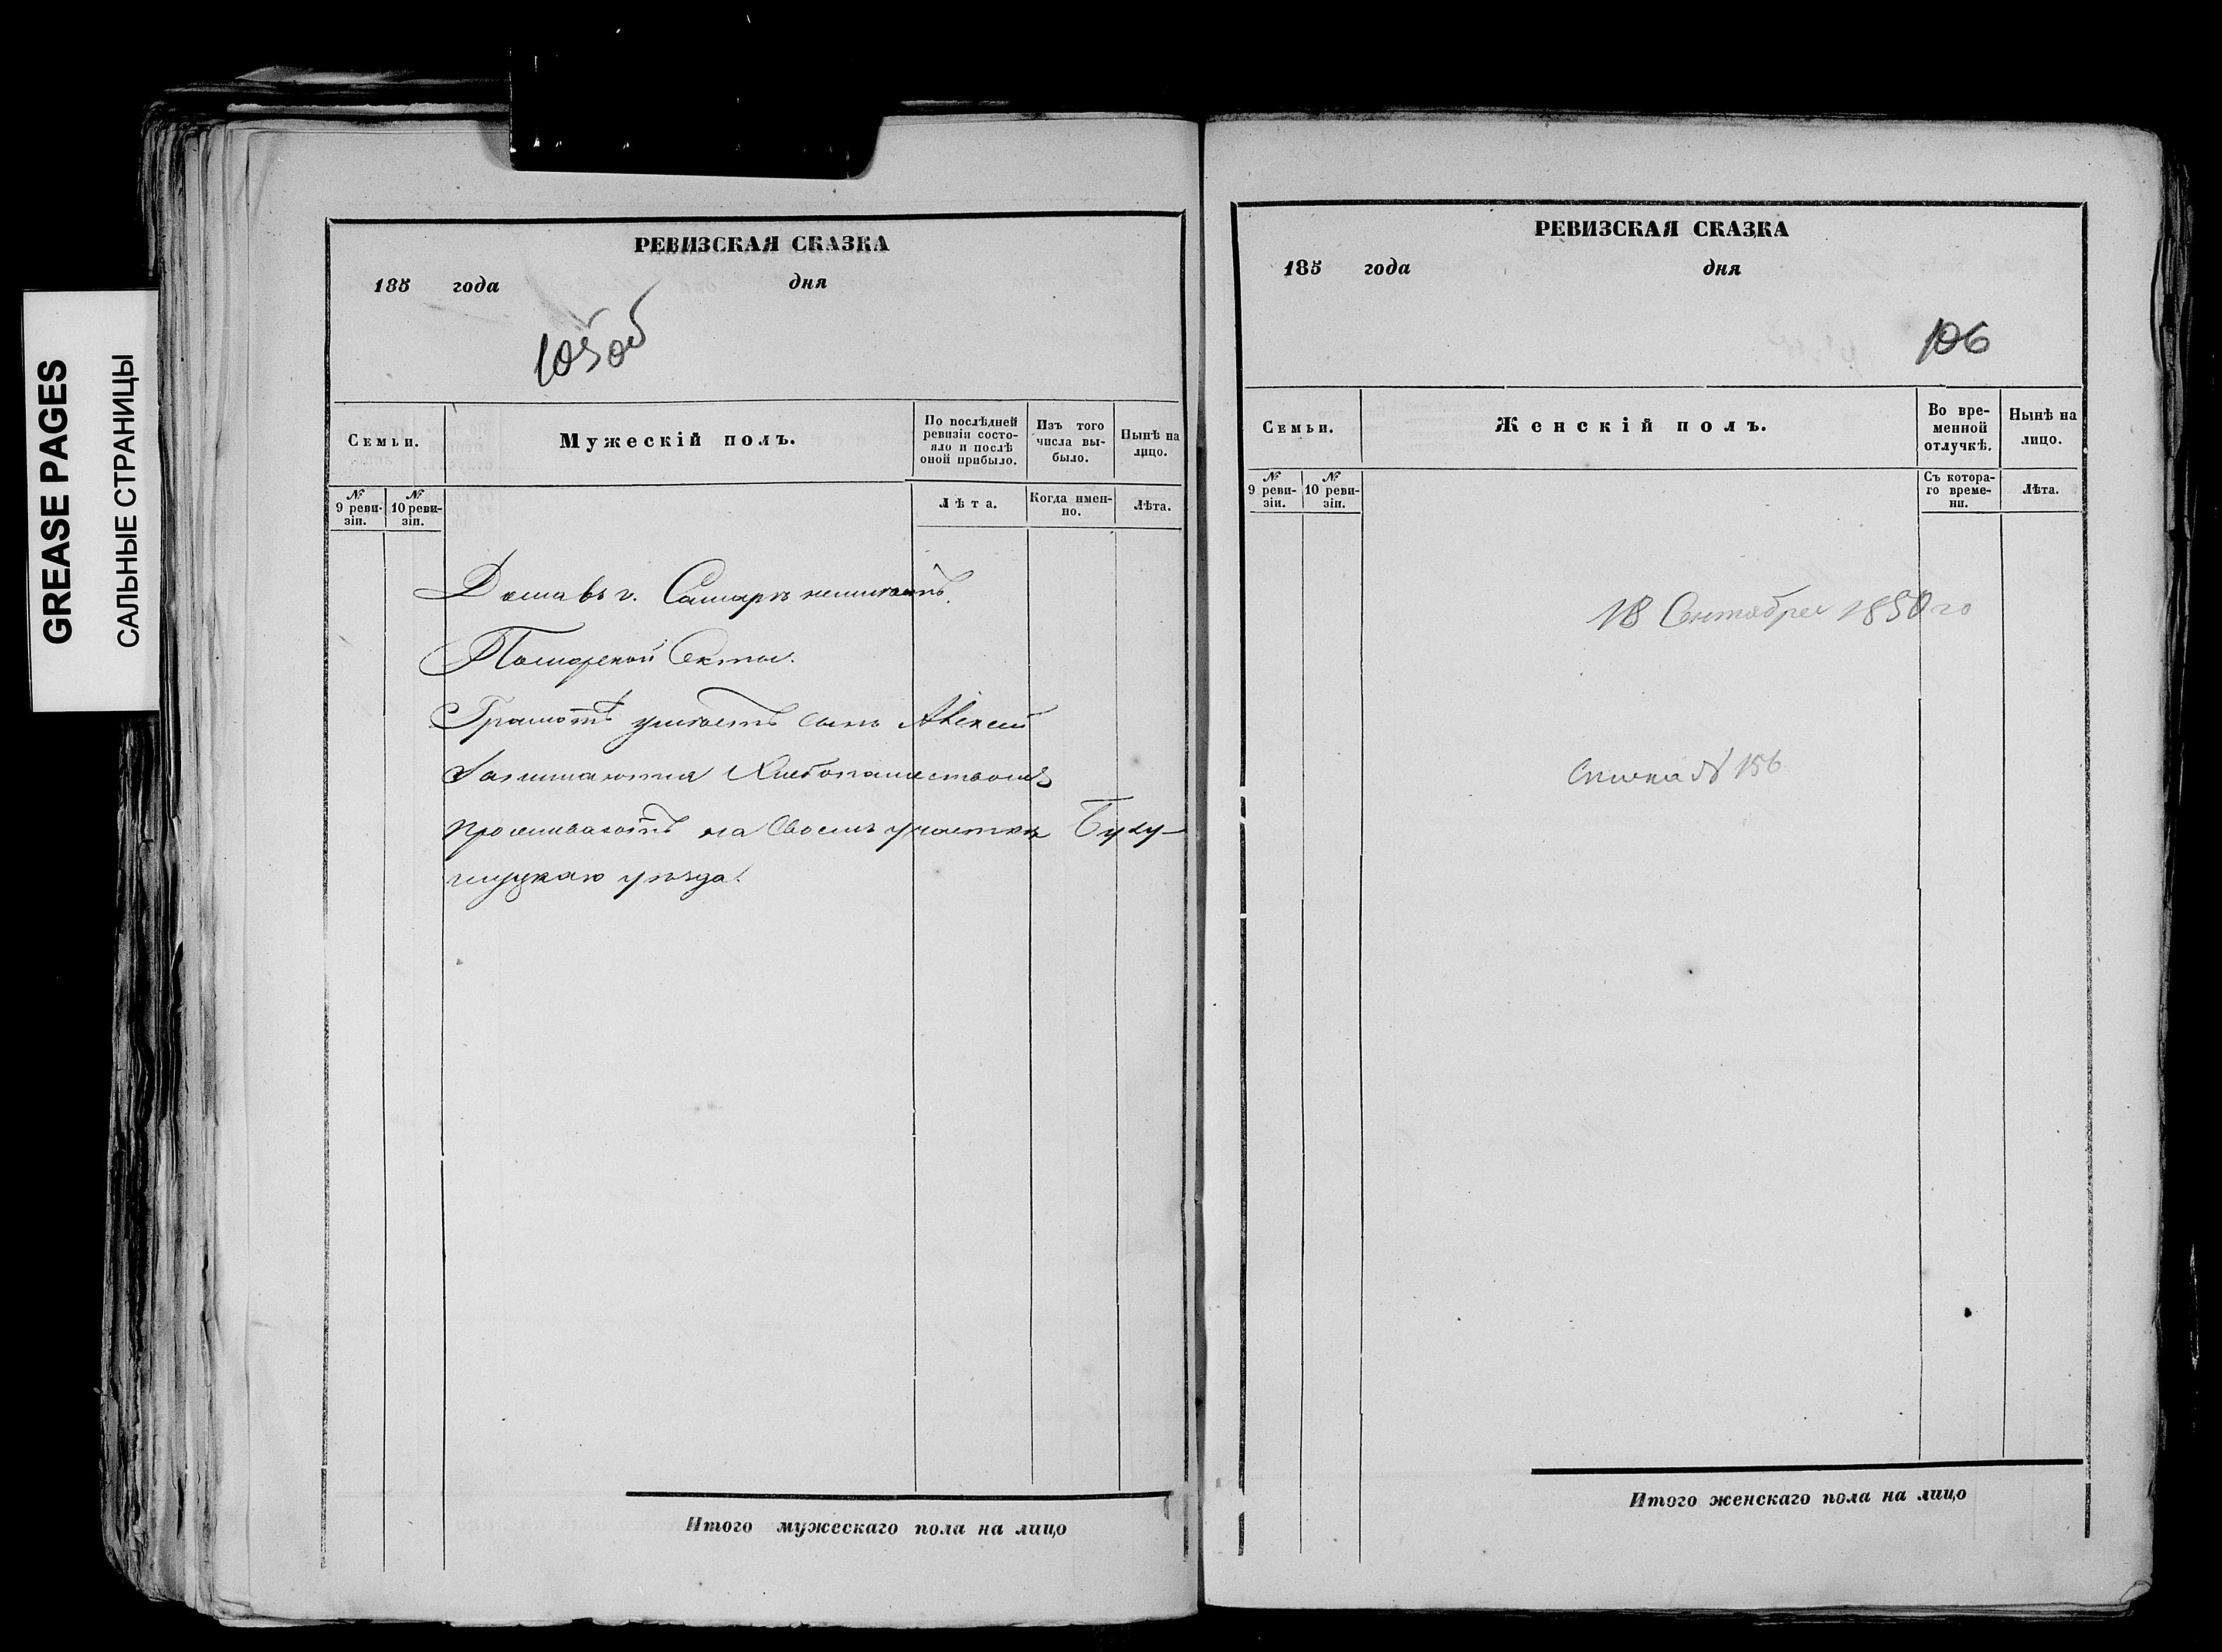 GREASE PAGES
САЛЬНЫЕ СТРАНИЦЫ
РЕВИЗСКАЯ СКАЗКА
185 года дня
105 об
Семьи.
Мужескій полъ.
По послѣдней ревизіи состояло и послѣ оной прибыло.
Изъ того числа выбыло.
Нынѣ на лицо.
№ 9 ревизіи.
№ 10 ревизіи.
Лѣта.
Когда именно.
Лѣта.
Дома въ г. Самарѣ неимѣютъ.
Поморской Секты.
Грамотѣ умѣетъ сынъ Алексей
Занимаются Хлебопашествомъ
проживаютъ на Своемъ участкѣ Бузу-
лукскаго уѣзда.
Итого мужескаго пола на лицо
РЕВИЗСКАЯ СКАЗКА
185 года дня
106
Семьи.
Женскій полъ.
Во временной отлучкѣ.
Нынѣ на лицо.
№ 9 ревизіи.
№ 10 ревизіи.
Съ котораго времени.
Лѣта.
18 Сентября 1850 го
№ 156
Итого женскаго пола на лицо